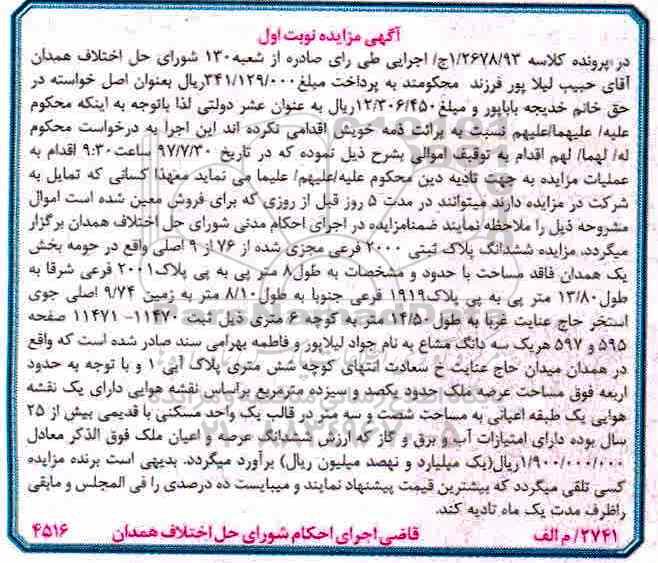 آگهی مزایده نوبت اول
در پرونده کلاسه ۱/۲۶۷۸/۹۳ج/ اجرایی طی رای صادره از شعبه۱۳۰ شورای حل اختلاف همدان
آقای حبیب لیلا پور فرزند محکومند به پرداخت مبلغ۳۴۱/۱۲۹/۰۰۰ریال بعنوان اصل خواسته در
حق خانم خدیجه باباپور و مبلغ۱۲/۳۰۶/۴۵۰ریال به عنوان عشر دولتی لذا باتوجه به اینکه محکوم
علیه/ علیهما/علیهم نسبت به برائت ذمه خویش اقدامی نکرده اند این اجرا به درخواست محکوم
له/ لهما/ لهم اقدام به توقیف اموالی بشرح ذیل نموده که در تاریخ ۹۷/۷/۳۰ ساعت۹:۳۰ اقدام به
عملیات مزایده به جهت تادیه دین محکوم علیه/علیهم/ علیما می نماید معهذا کسانی که تمایل به
شرکت در مزایده دارند میتوانند در مدت ۵ روز قبل از روزی که برای فروش معین شده است اموال
مشروحه ذیل را ملاحظه نمایند ضمنامزایده در اجرای احکام مدنی شورای حل اختلاف همدان برگزار
میگردد. مزایده ششدانگ پلاک ثبتی ۲۰۰۰ فرعی مجزی شده از ۷۶ از ۹ اصلی واقع در حومه بخش
یک همدان فاقد مساحت با حدود و مشخصات به طول۸ متر پی به پی پلاک۲۰۰۱ فرعی شرقا به
طول۱۳/۸۰ متر پی به پی پلاک۱۹۱۹ فرعی جنوبا به طول۸/۱۰ متر به زمین ۹/۷۴ اصلی جوی
استخر حاج عنایت غربا به طول ۱۴/۵۰ متر به کوچه ۶ متری ذیل ثبت ۱۱۴۷۰- ۱۱۴۷۱ صفحه
۵۹۵ و ۵۹۷ هریک سه دانگ مشاع به نام جواد لیلاپور و فاطمه بهرامی سند صادر شده است که واقع
در همدان میدان حاج عنایت خ سعادت انتهای کوچه شش متری پلاک آبی ۱۰ و با توجه به حدود
اربعه فوق مساحت عرصه ملک حدود یکصد و سیزده مترمربع براساس نقشه هوایی دارای یک نقشه
هوایی یک طبقه اعیانی به مساحت شصت و سه متر در قالب یک واحد مسکنی با قدیمی بیش از ۲۵
سال بوده دارای امتیازات آب و برق و گاز که ارزش ششدانگ عرصه و اعیان ملک فوق الذکر معادل
۱/۹۰۰/۰۰۰/۰۰۰ریال(یک میلیارد و نهصد میلیون ریال) برآورد میگردد. بدیهی است برنده مزایده
کسی تلقی میگردد که بیشترین قیمت پیشنهاد نمایند و میبایست ده درصدی را فی المجلس و مابقی
راظرف مدت یک ماه تادیه کند.
۲۷۴۱/ م الف قاضی اجرای احکام شورای حل اختلاف همدان ۴۵۱۶